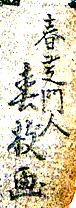 春芝門人
春枝画